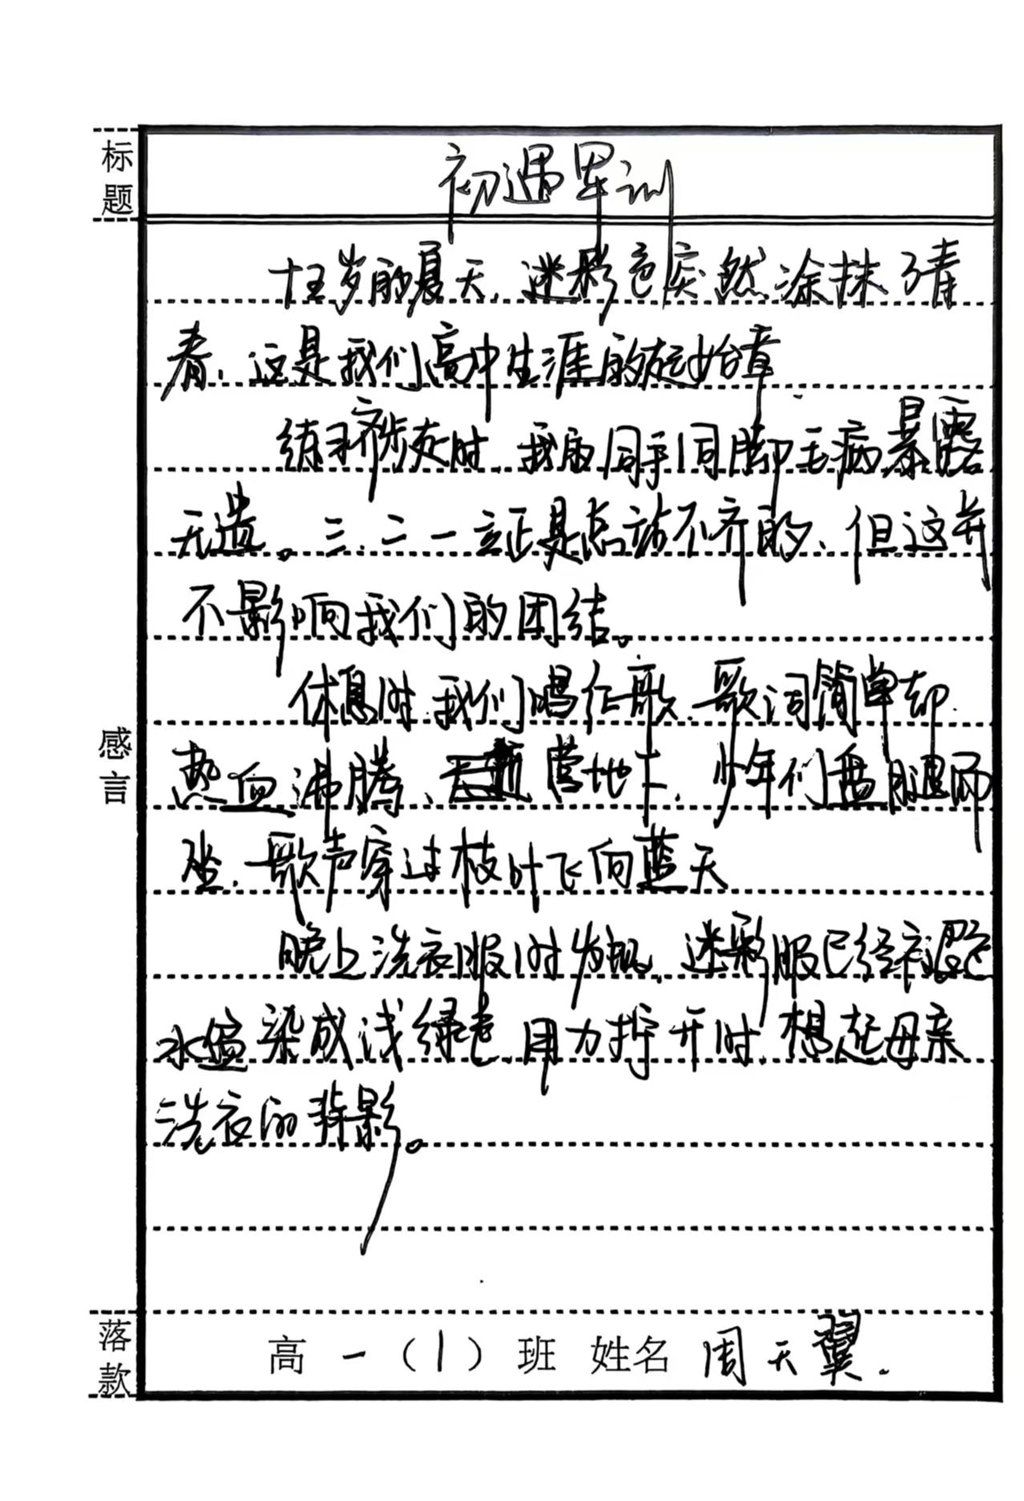 标题
初遇军训
十五岁的夏天,迷彩色突然涂抹了青
春,这是我们高中生涯的起始章
练习齐步走时,我的同手同脚毛病暴露
无遗。三、二、一立正是总站不齐的,但这并
不影响我们的团结。
休息时,我们唱红歌,歌词简单却
热血沸腾,营地下,少年们盘腿而
坐,歌声穿过枝叶飞向蓝天
感言
晚上洗衣服时发现,迷彩服已经被
水盆染成浅绿色,用力拧开时,想起母亲
洗衣的背影。
落款
高一(1)班 姓名 周天翼.